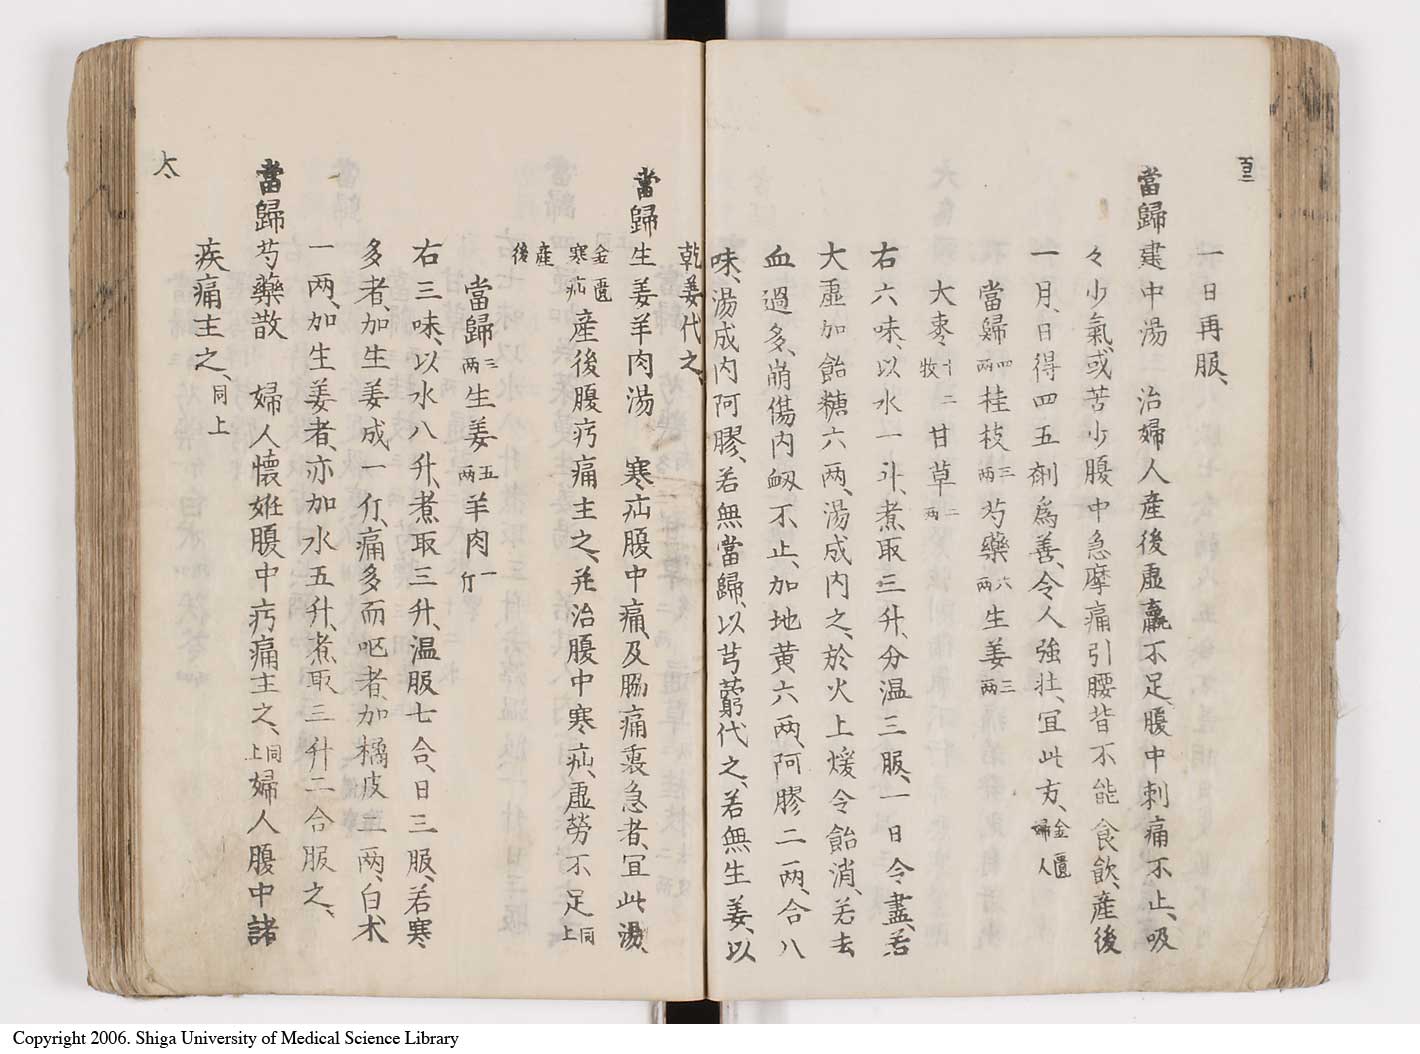 一日再服、
當歸建中湯　治婦人産後虛羸不足、腹中刺痛不止、吸
々少氣、或苦少腹中急摩痛引腰背不能食飲、産後
一月、日得四五劑爲善、令人強壯、宜此方、金匱婦人
當歸四兩桂枝三兩芍藥六兩生姜三兩
大棗十二枚甘草二兩
右六味、以水一斗、煮取三升、分温三服、一日令盡、若
大虛加飴糖六兩、湯成内之、於火上煖令飴消、若去
血過多、崩傷内衂不止、加地黄六兩、阿膠二兩、合八
味、湯成内阿膠、若無當歸、以芎藭代之、若無生姜、以
乾姜代之、
當歸生姜羊肉湯　寒疝腹中痛、及脇痛裏急者、宜此湯、
金匱寒疝産後腹㽲痛主之、并治腹中寒疝、虛勞不足同上
産後
當歸三兩生姜五兩羊肉一斤
右三味、以水八升、煮取三升、温服七合、日三服、若寒
多者、加生姜成一斤、痛多而嘔者、加橘皮二兩、白朮
一兩、加生姜者、亦加水五升、煮取三升二合服之、
當歸芍藥散　婦人懷姙腹中㽲痛主之、同上婦人腹中諸
疾痛主之、同上
六
百三
Copyright 2006. Shiga University of Medical Science Library